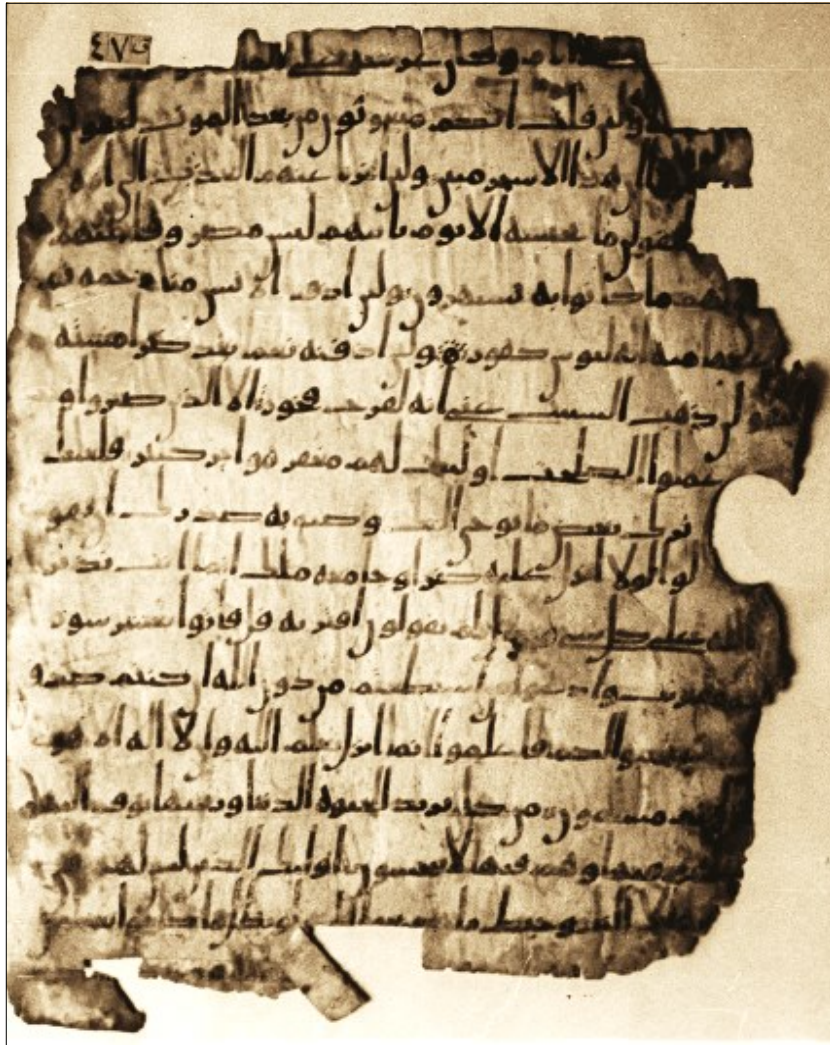 ق ٤٧
ايام وكان عرشه على الما
ولين قلت انكم مبعوثون من بعد الموت ليقولن
ان هذا الا سحر مبين ولين اخرنا عنهم العذاب الى امه
ليقولن ما يحبسه الا يوم ياتيهم ليس مصروفا عنهم
بهم ما كانوا به يستهزون ولين اذقنا الانسن منا رحمه ثم
نزعنها منه انه ليوس كفور ولين اذقنه نعما بعد ضرا مسته
ليقولن ذهب السيت عنى انه لفرح فخور الا الذين صبروا و
عملوا الصلحت اوليك لهم مغفره واجر كبير فلعلك
ترك بعض ما يوحى اليك وضيق به صدرك ان يقو
لوا لولا انزل عليه كنز او جا معه ملك انما انت نذير
الله على كل شى وكيل ام يقولون افتريه قل فاتوا بعشر سور
مفتريت وادعوا من استطعتم من دون الله ان كنتم صد
يستجيبوا لكم فاعلموا انما انزل بعلم الله وان لا اله الا هو
انتم مسلمون من كان يريد الحيوه الدنيا وزينتها نوف اليهم
فيها وهم فيها لا يبخسون اوليك الذين ليس لهم
الا النار وحبط ما صنعوا